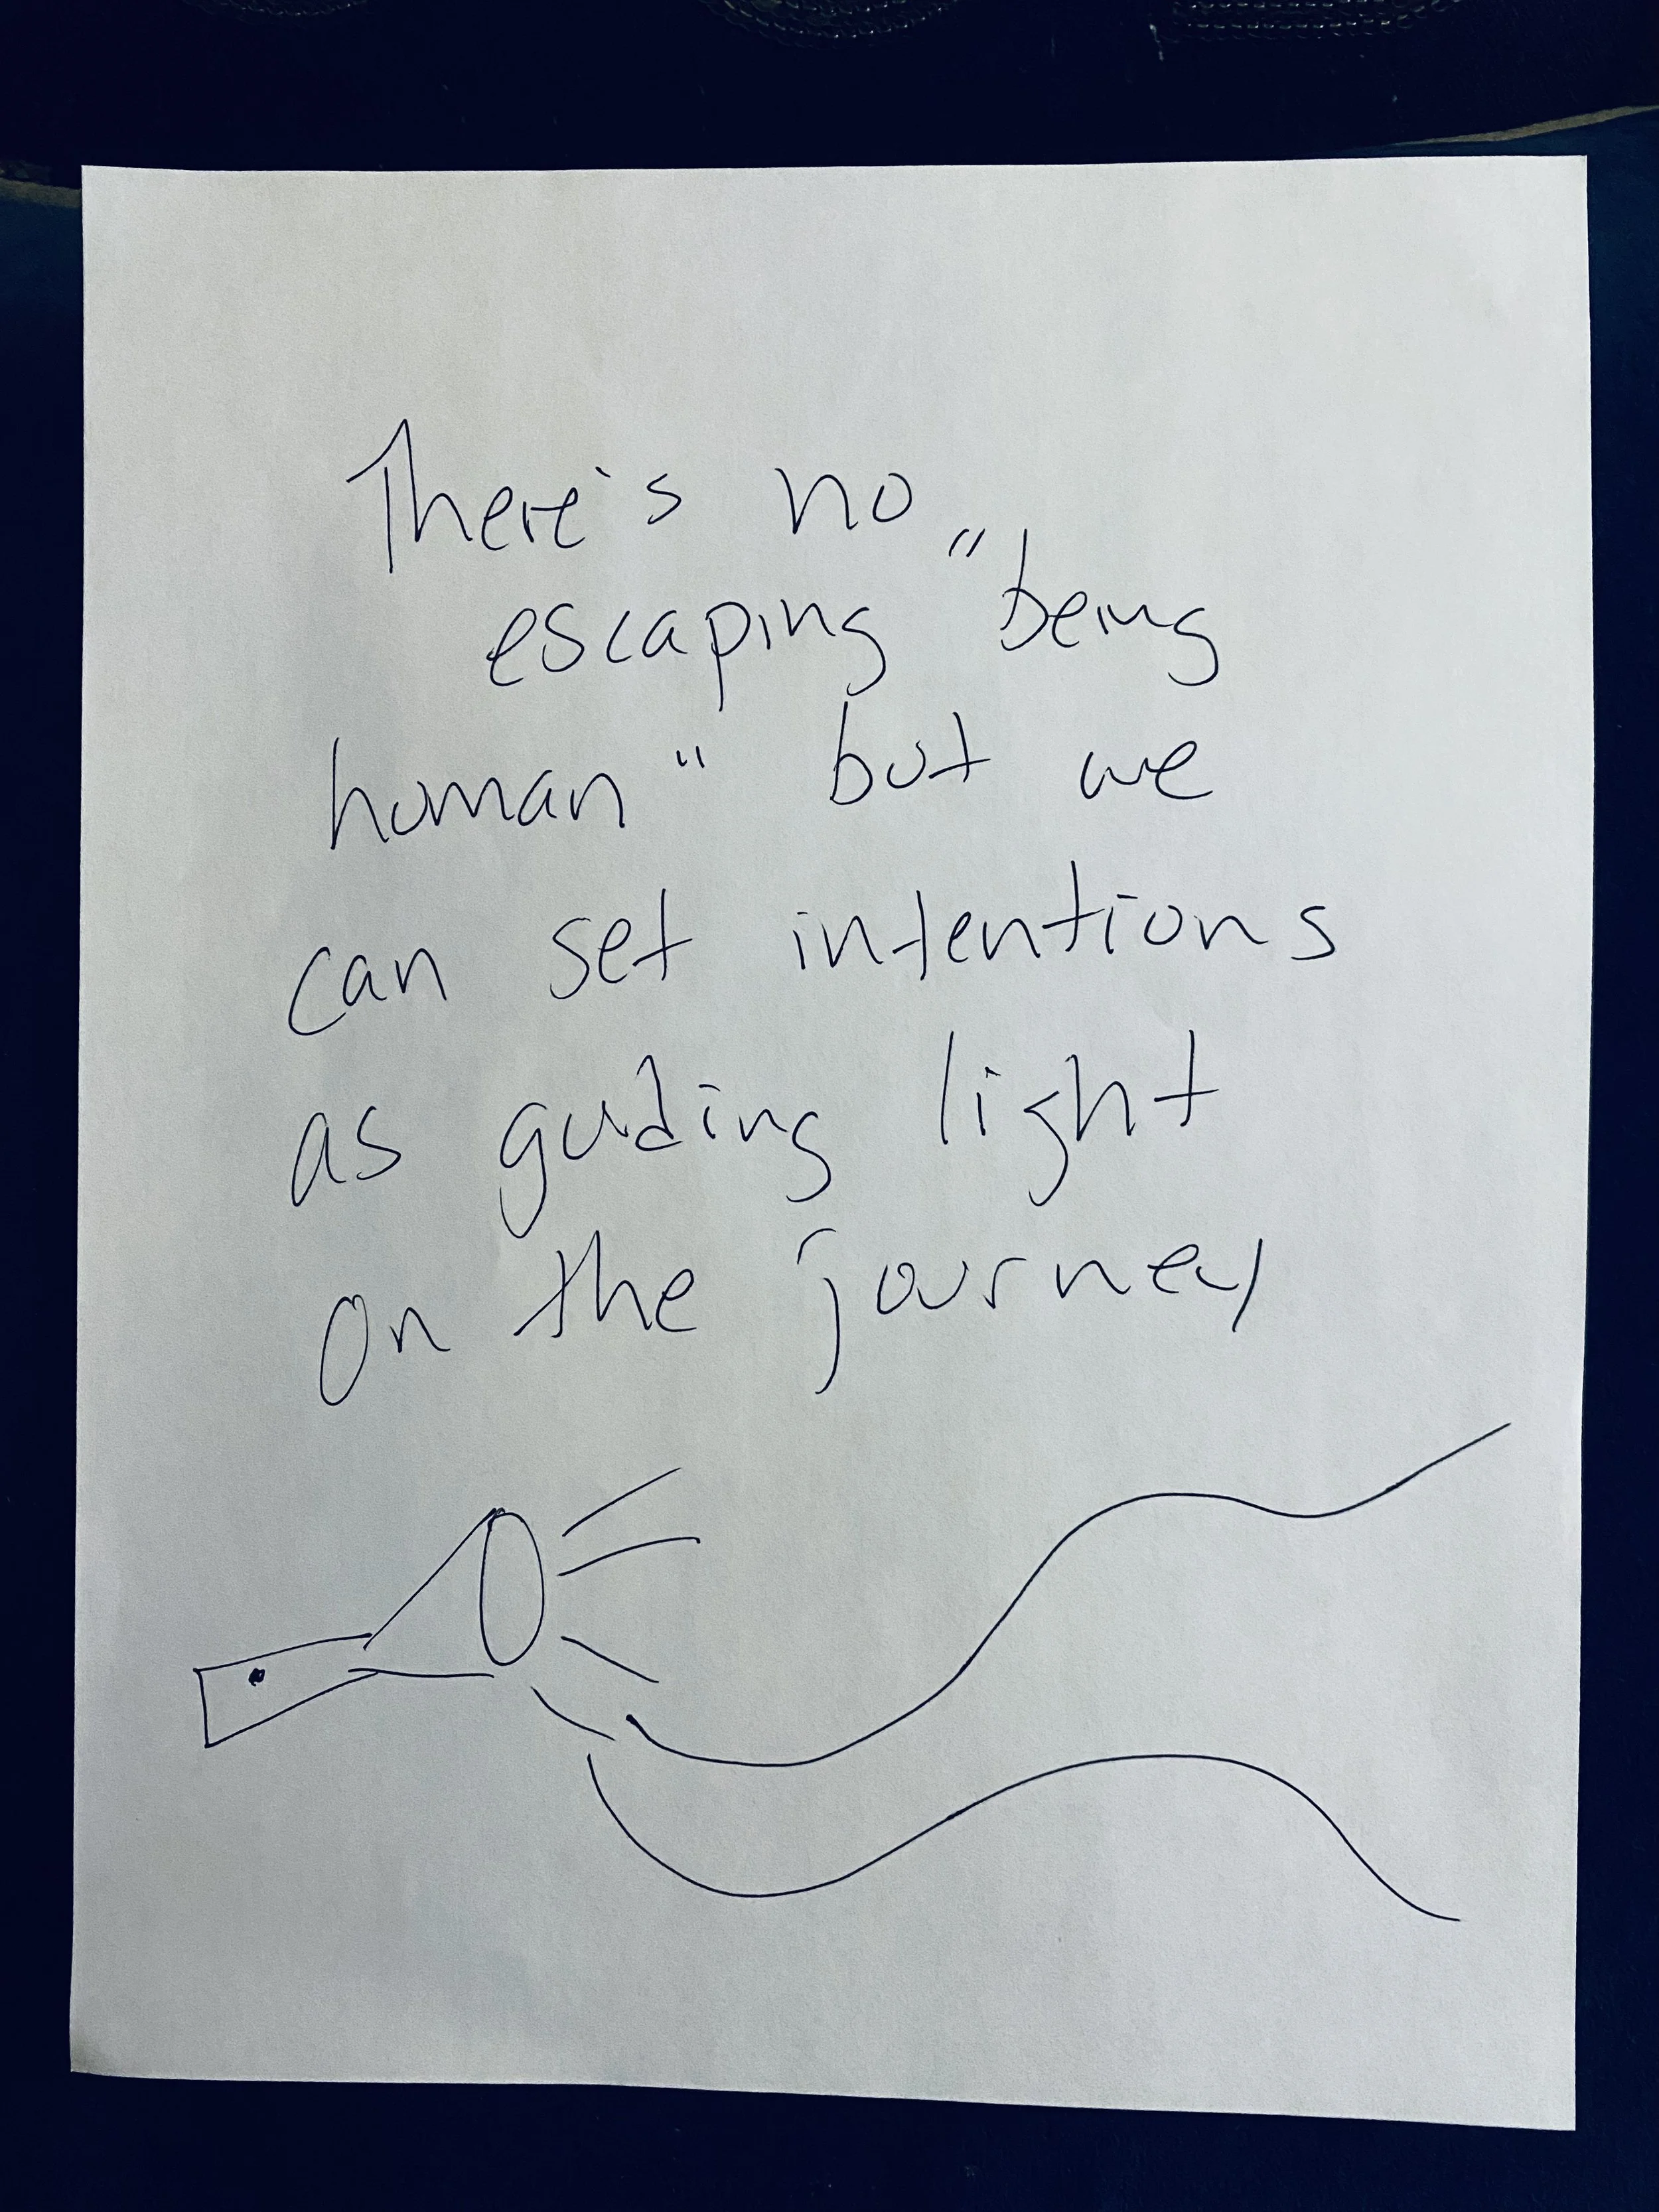 There's no
escaping "being
human" but we
can set intentions
as guiding light
on the journey